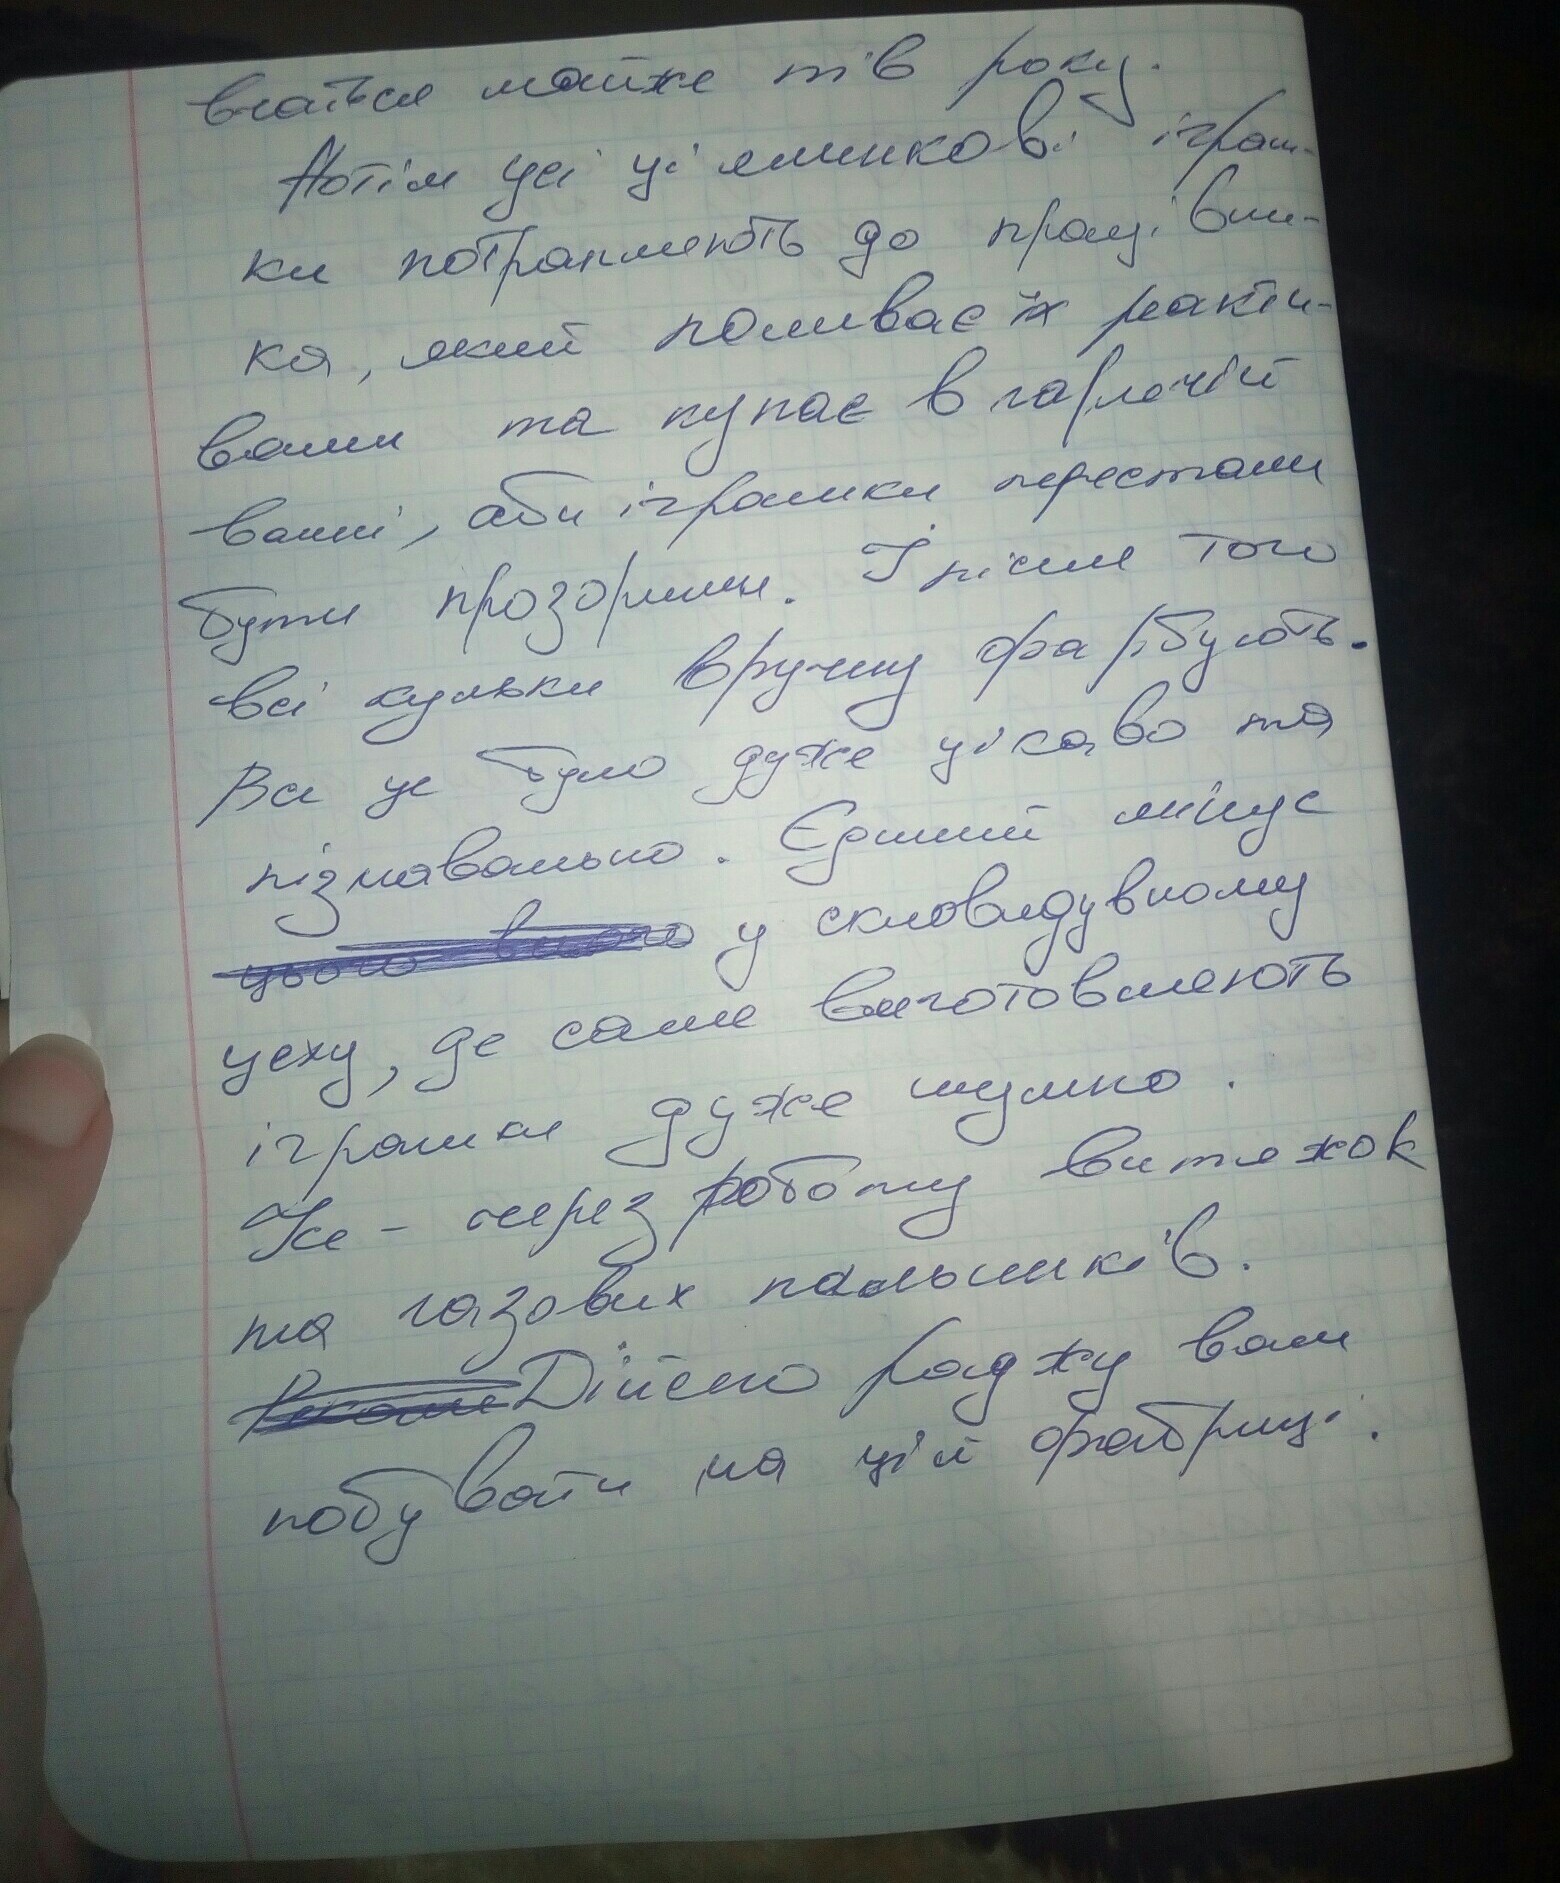 вчаться майже пів року.
Потім усі ці ялинкові іграш-
ки потрапляють до працівни-
ка, який поливає їх реакти-
вами та купає в гарячій
ванні, аби іграшки перестали
бути прозорими. І після того
всі кульки вручну фарбують.
Все це було дуже цікаво та
пізнавально. Єдиний мінус
цього всього у склодувному
цеху, де саме виготовляють
іграшки дуже шумно.
Усе - через роботу витяжок
та газових пальників.
Дійсно раджу вам
побувати на цій фабриці.